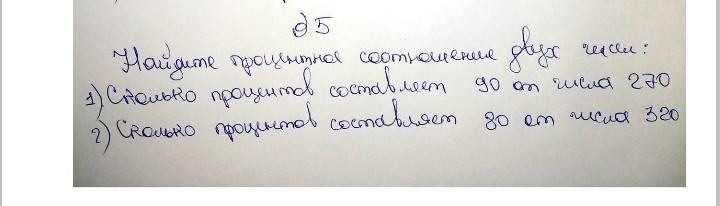 №5
Найдите процентное соотношение двух чисел:
1) Сколько процентов составляет 90 от числа 270
2) Сколько процентов составляет 80 от числа 320